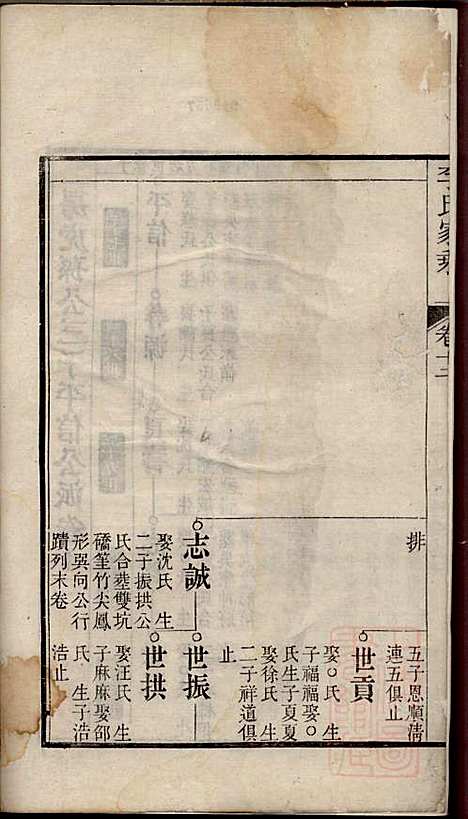 李氏家乘
卷十三
排
五子恩順清
連五俱止
世貢
娶○氏 生
子福福娶○
氏生子夏夏
娶徐氏 生
二子祥道俱
止
志誠
娶沈氏 生
二子振拱公
氏合塟雙坑
礄筀竹尖鳳
形巽向公行
蹟列末卷
世振
世拱
娶汪氏 生
子麻麻娶邵
氏 生子浩
浩止